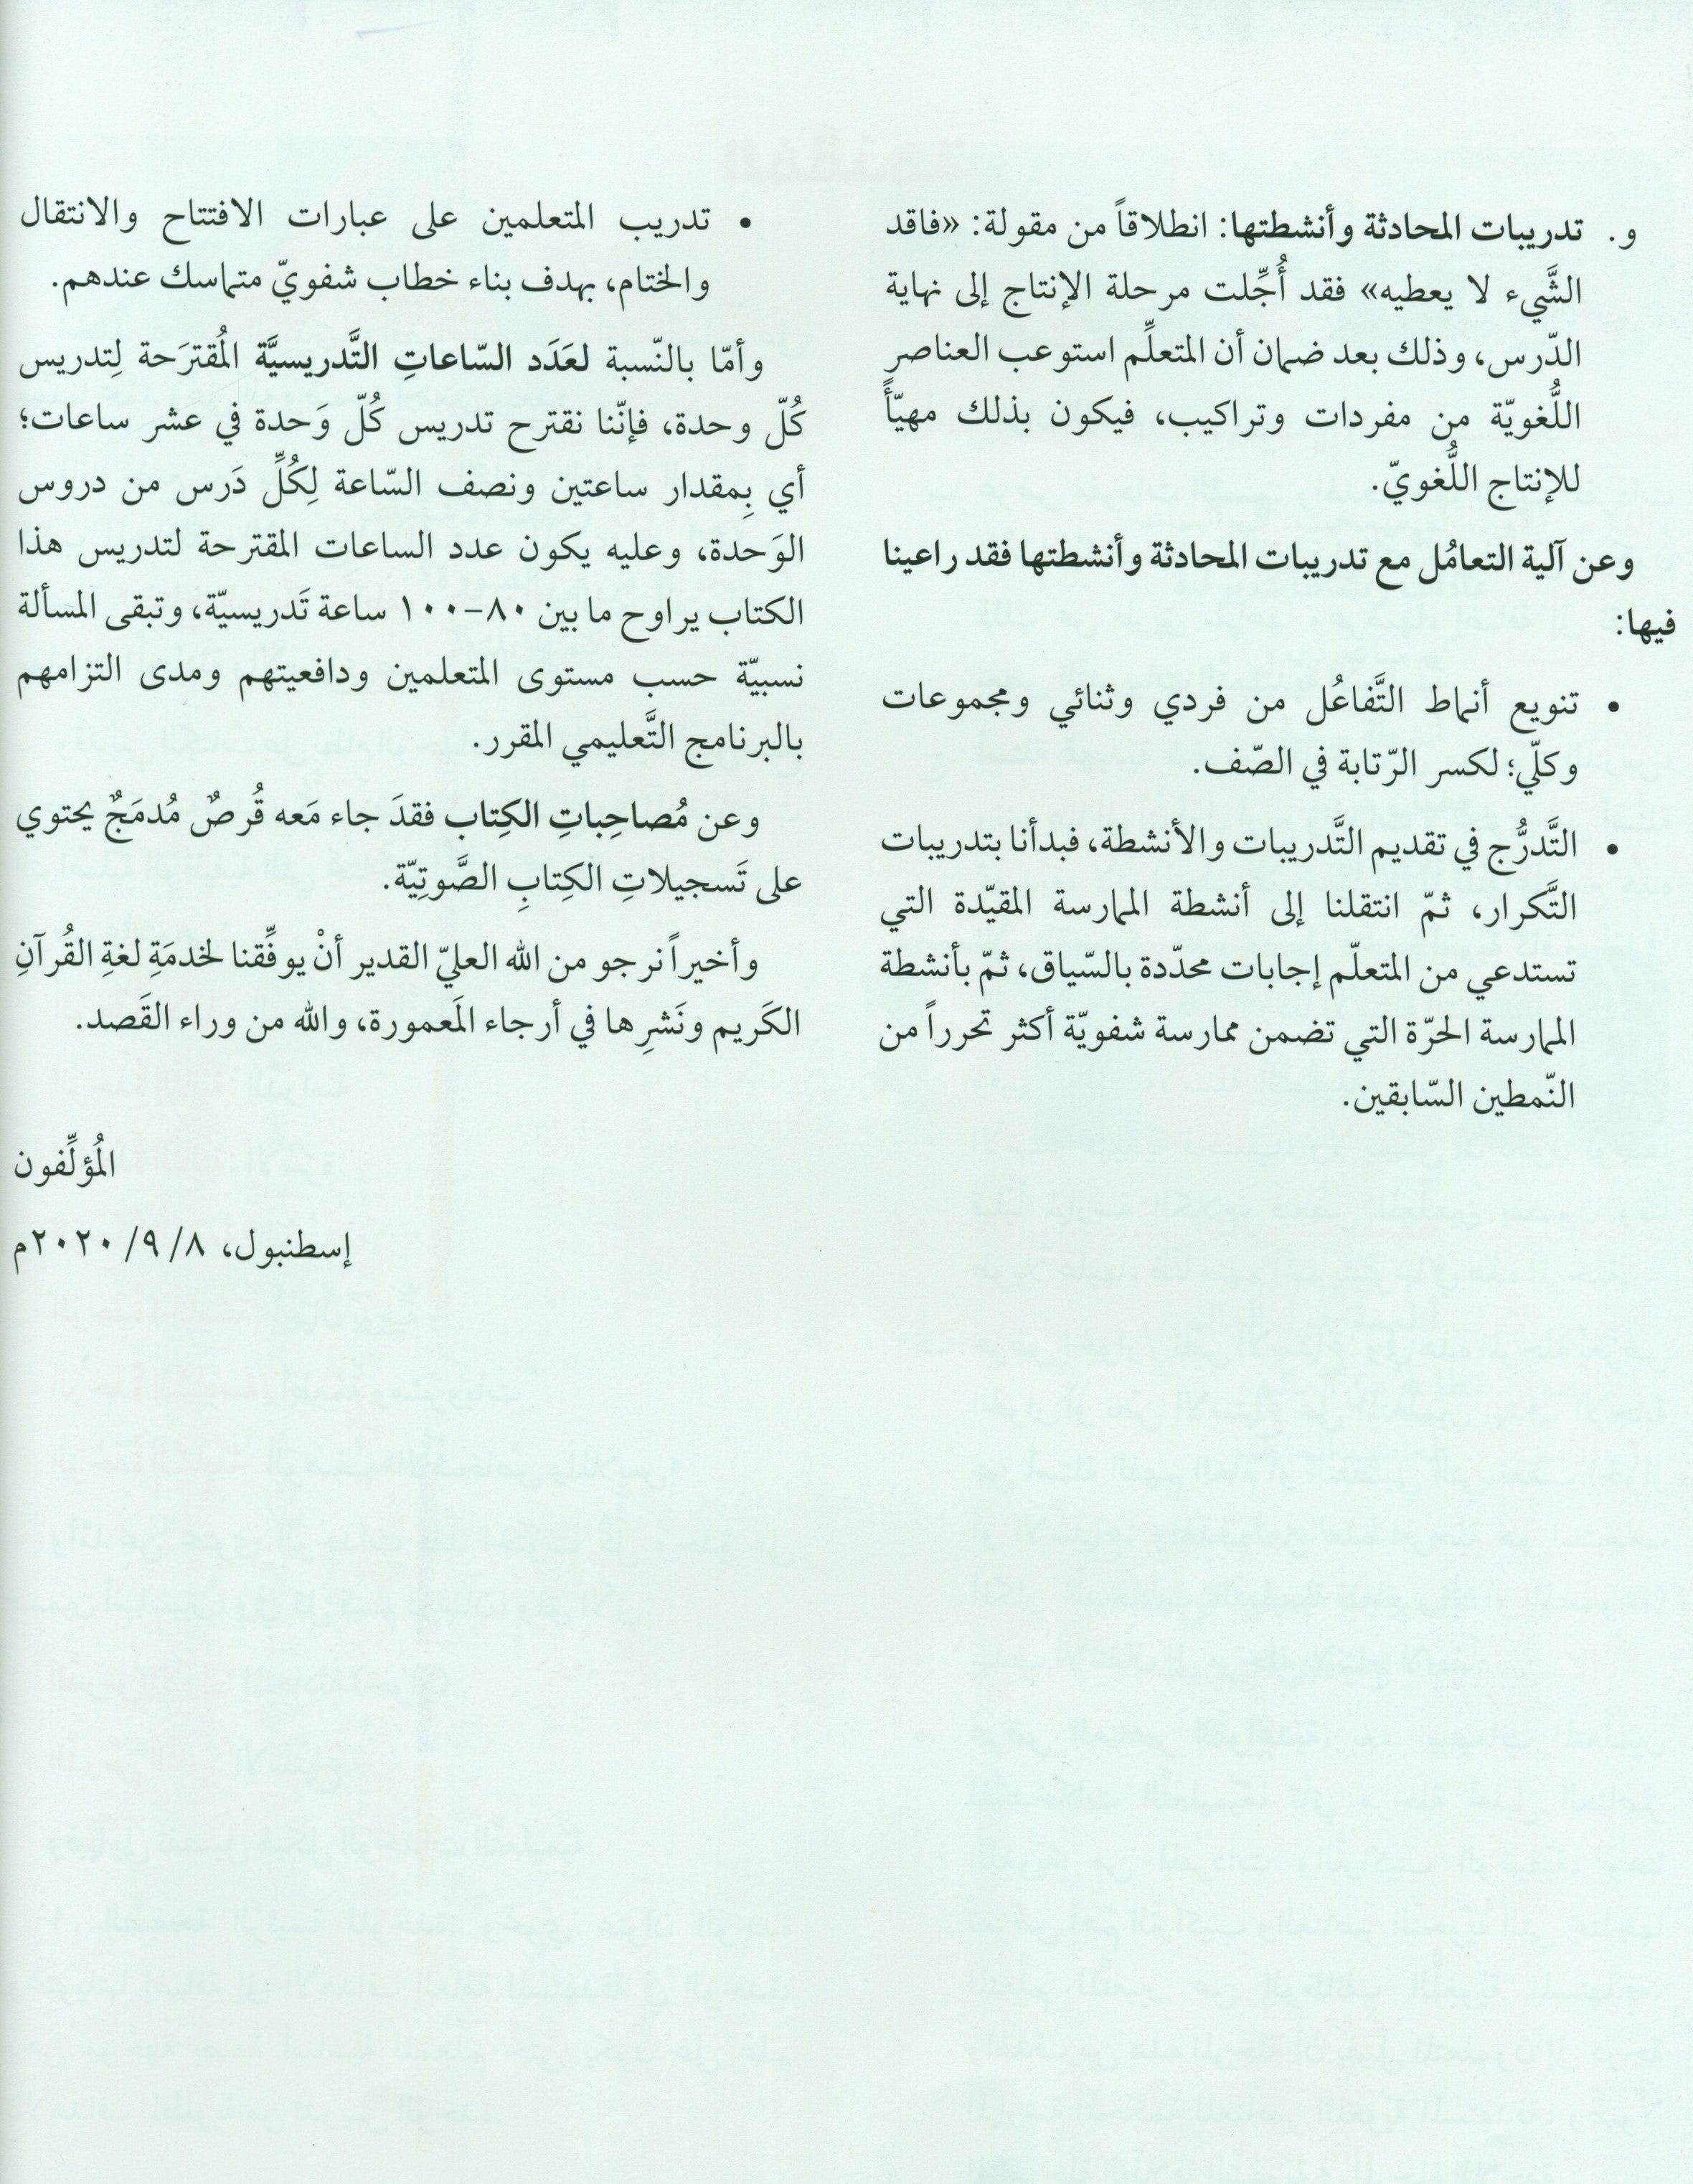 و. تدريبات المحادثة وأنشطتها: انطلاقاً من مقولة: «فاقد
الشَّيء لا يعطيه» فقد أُجِّلت مرحلة الإنتاج إلى نهاية
الدّرس، وذلك بعد ضمان أن المتعلِّم استوعب العناصر
اللُّغويّة من مفردات وتراكيب، فيكون بذلك مهيّأً
للإنتاج اللُّغويّ.
وعن آلية التعامُل مع تدريبات المحادثة وأنشطتها فقد راعينا
فيها:
• تنويع أنماط التَّفاعُل من فردي وثنائي ومجموعات
وكلّي؛ لكسر الرّتابة في الصّف.
• التَّدرُّج في تقديم التَّدريبات والأنشطة، فبدأنا بتدريبات
التَّكرار، ثمّ انتقلنا إلى أنشطة الممارسة المقيّدة التي
تستدعي من المتعلّم إجابات محدّدة بالسّياق، ثمّ بأنشطة
الممارسة الحرّة التي تضمن ممارسة شفويّة أكثر تحرراً من
النّمطين السّابقين.
• تدريب المتعلمين على عبارات الافتتاح والانتقال
والختام، بهدف بناء خطاب شفويّ متماسك عندهم.
وأمّا بالنّسبة لعَدَد السّاعاتِ التَّدريسيَّة المُقترَحة لِتدريس
كُلّ وحدة، فإنّنا نقترح تدريس كُلّ وَحدة في عشر ساعات؛
أي بِمقدار ساعتين ونصف السّاعة لِكُلِّ دَرس من دروس
الوَحدة، وعليه يكون عدد الساعات المقترحة لتدريس هذا
الكتاب يراوح ما بين ٨٠-١٠٠ ساعة تَدريسيّة، وتبقى المسألة
نسبيّة حسب مستوى المتعلمين ودافعيتهم ومدى التزامهم
بالبرنامج التَّعليمي المقرر.
وعن مُصاحِباتِ الكِتاب فقدَ جاء مَعه قُرصٌ مُدمَجٌ يحتوي
على تَسجيلاتِ الكِتابِ الصَّوتِيّة.
وأخيراً نرجو من الله العليّ القدير أنْ يوفِّقنا لخدمَةِ لغةِ القُرآنِ
الكَريم ونَشرِها في أرجاء المَعمورة، والله من وراء القَصد.
المُؤلِّفون
إسطنبول، ٨/ ٩/ ٢٠٢٠م